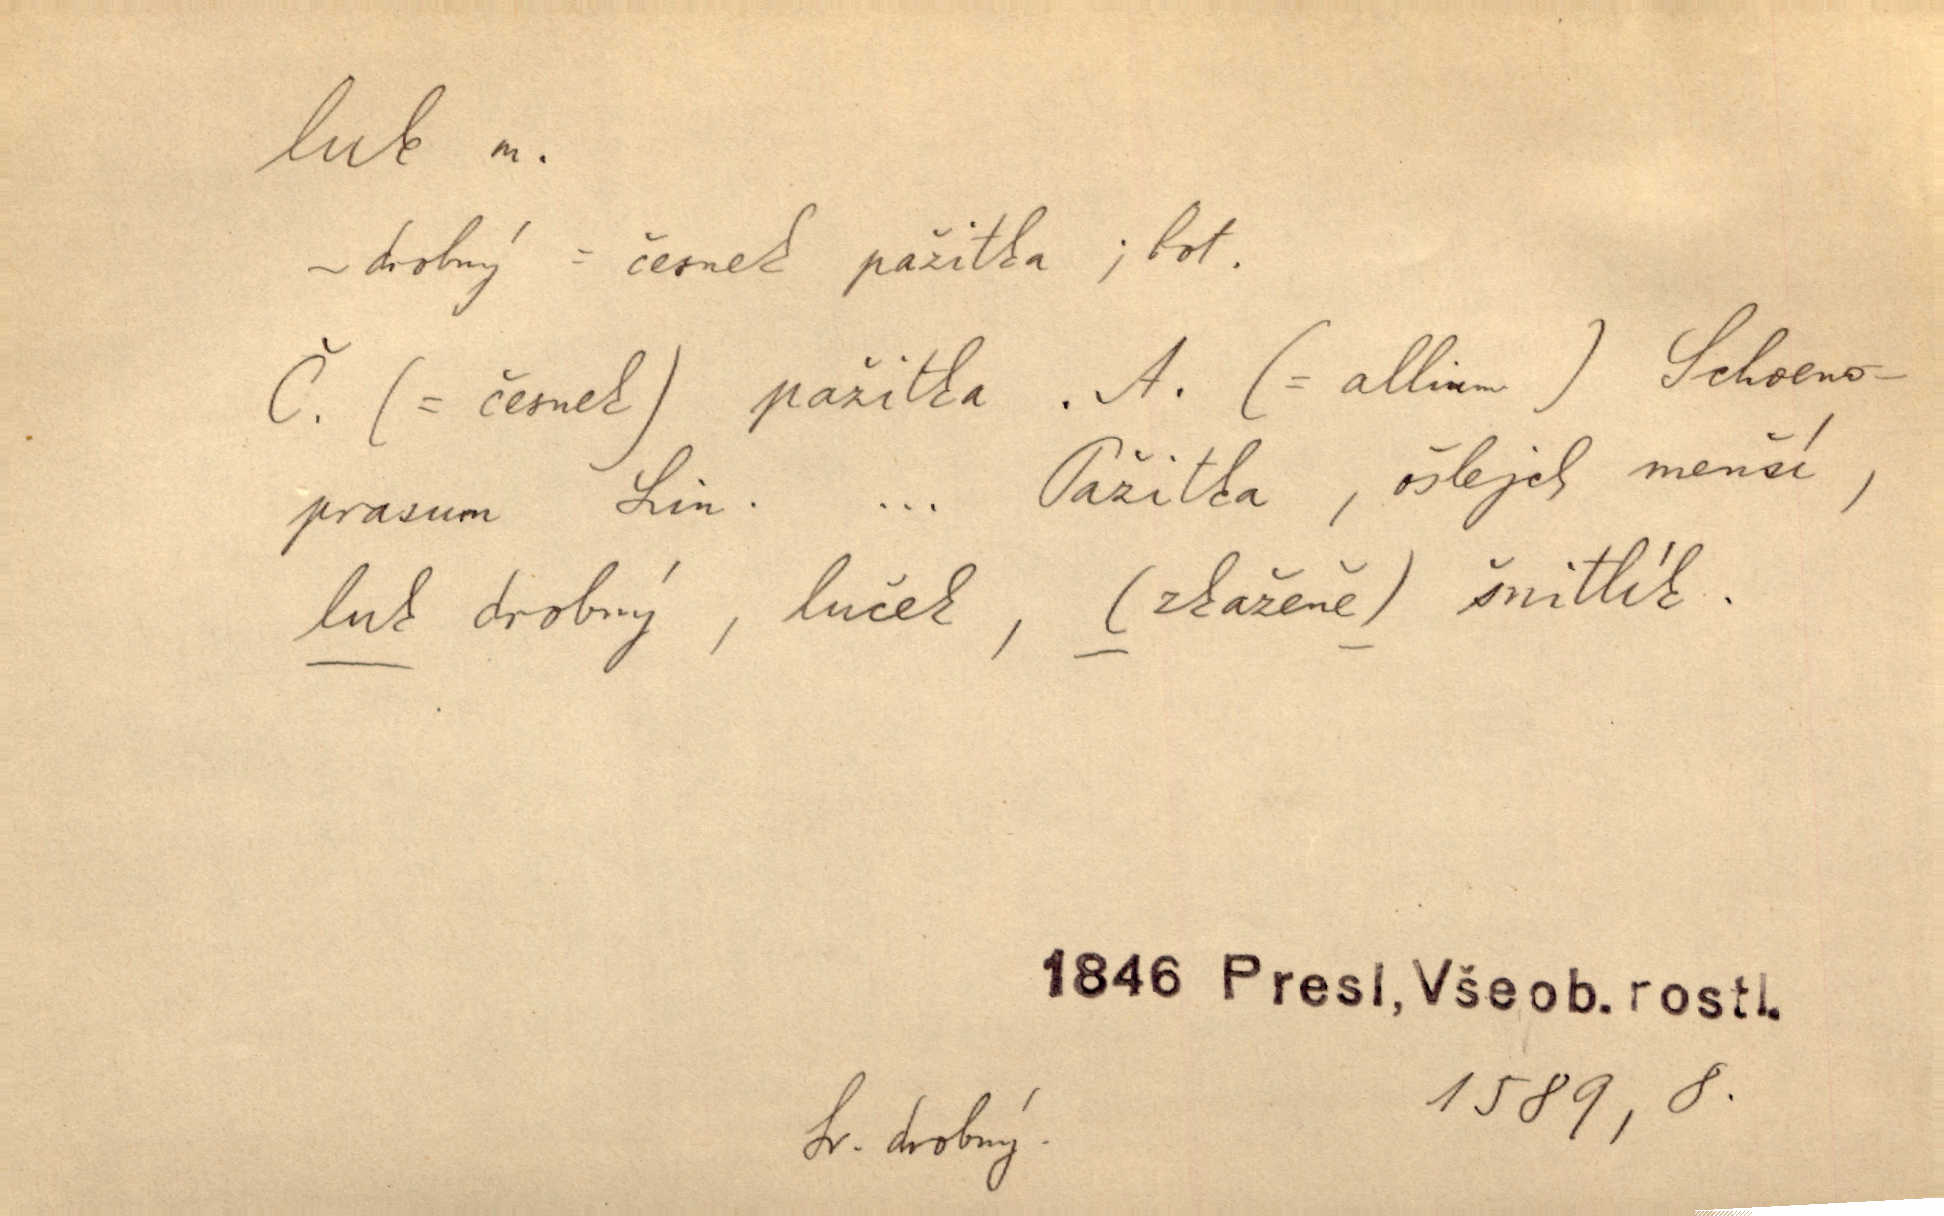 luk m.
~ drobný = česnek pažitka ; bot.
Č. (= česnek) pažitka . A. (= allium ) Schoeno-
prasum Lin. ... Pažitka , ošlejch menší ,
luk drobný , luček , (zkaženě) šnitlík .
1846 Presl, Všeob. rostl.
1589, 8.
Sr. drobný.